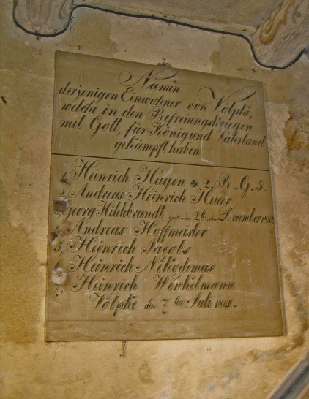 Namen
derjenigen Einwohner von Völpke,
welche in den Befreiungskriegen
mit Gott, für König und Vaterland
gekämpft haben
Heinrich Hagen
2. Andreas Heinrich Huns
Georg Hildebrandt
Andreas Hoffmeister
5. Heinrich Jacobs
Heinrich Nikodemus
Heinrich Winkelmann
Völpke den 7ten Juli